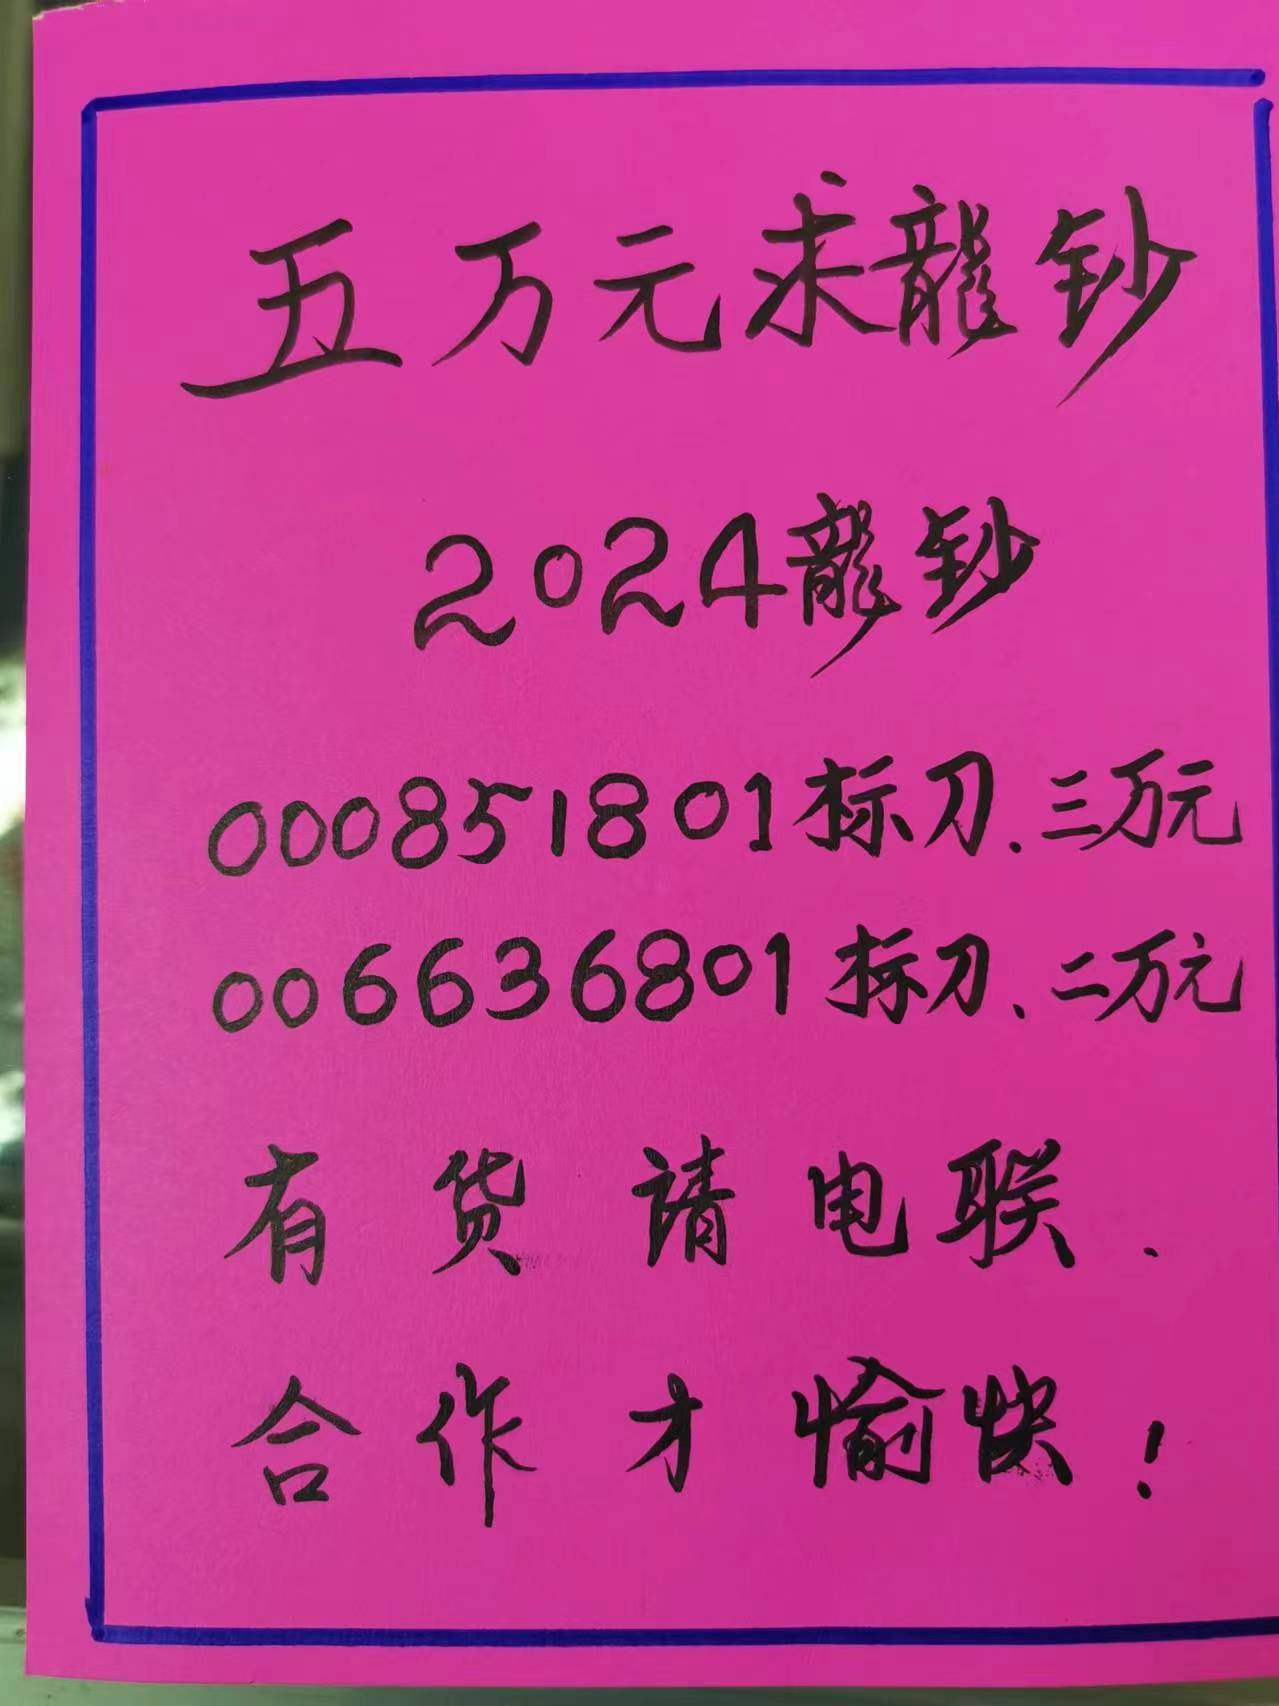 五万元求龍鈔
2024龍鈔
000851801标刀.三万元
006636801标刀、二万元
有货请电联.
合作才愉快!